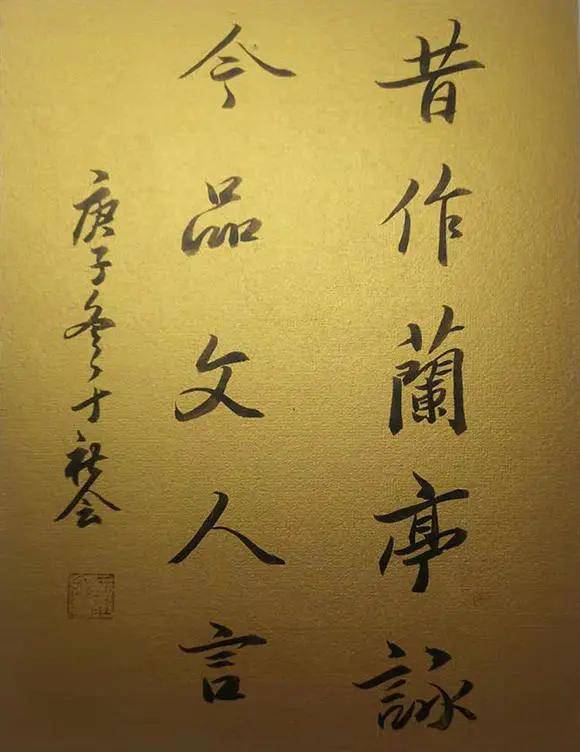 昔作蘭亭詠
今品文人言
庚子冬十社会